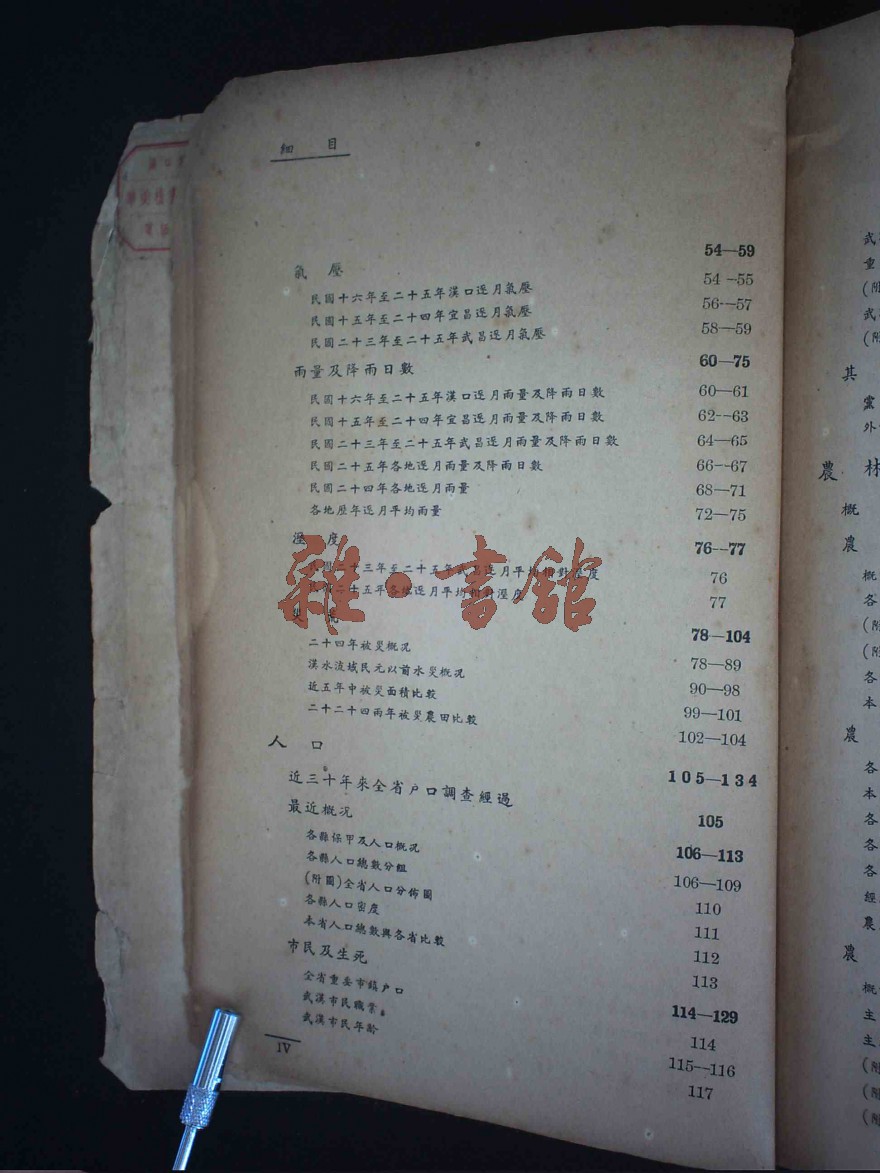 細目
氣壓 54—59
民國十六年至二十五年漢口逐月氣壓 54—55
民國十五年至二十四年宜昌逐月氣壓 56—57
民國二十三年至二十五年武昌逐月氣壓 58—59
雨量及降雨日數 60—75
民國十六年至二十五年漢口逐月雨量及降雨日數 60—61
民國十五年至二十四年宜昌逐月雨量及降雨日數 62—63
民國二十三年至二十五年武昌逐月雨量及降雨日數 64—65
民國二十五年各地逐月雨量及降雨日數 66—67
民國二十四年各地逐月雨量 68—71
各地歷年逐月平均雨量 72—75
溼度 76—77
民國二十三年至二十五年武昌逐月平均相對溼度 76
民國二十五年各地逐月平均相對溼度 77
災況 78—104
二十四年被災概況 78—89
漢水流域民元以前水災概況 90—98
近五年中被災面積比較 99—101
二十二十四兩年被災農田比較 102—104
人口 105—134
近三十年來全省户口調查經過 105
最近概況 106—113
各縣保甲及人口概況 106—109
各縣人口總數分組 110
(附圖)全省人口分佈圖 111
各縣人口密度 112
本省人口總數與各省比較 113
市民及生死 114—129
全省重要市鎮户口 114
武漢市民職業 115—116
武漢市民年齡 117
IV
雜·書館
武
重
(附
武
(附
其
黨
外
農林
概
農
概
各
(附
(附
各
本
農
各
本
各
各
各
經
農
農
概
主
主
(附
(附
(附